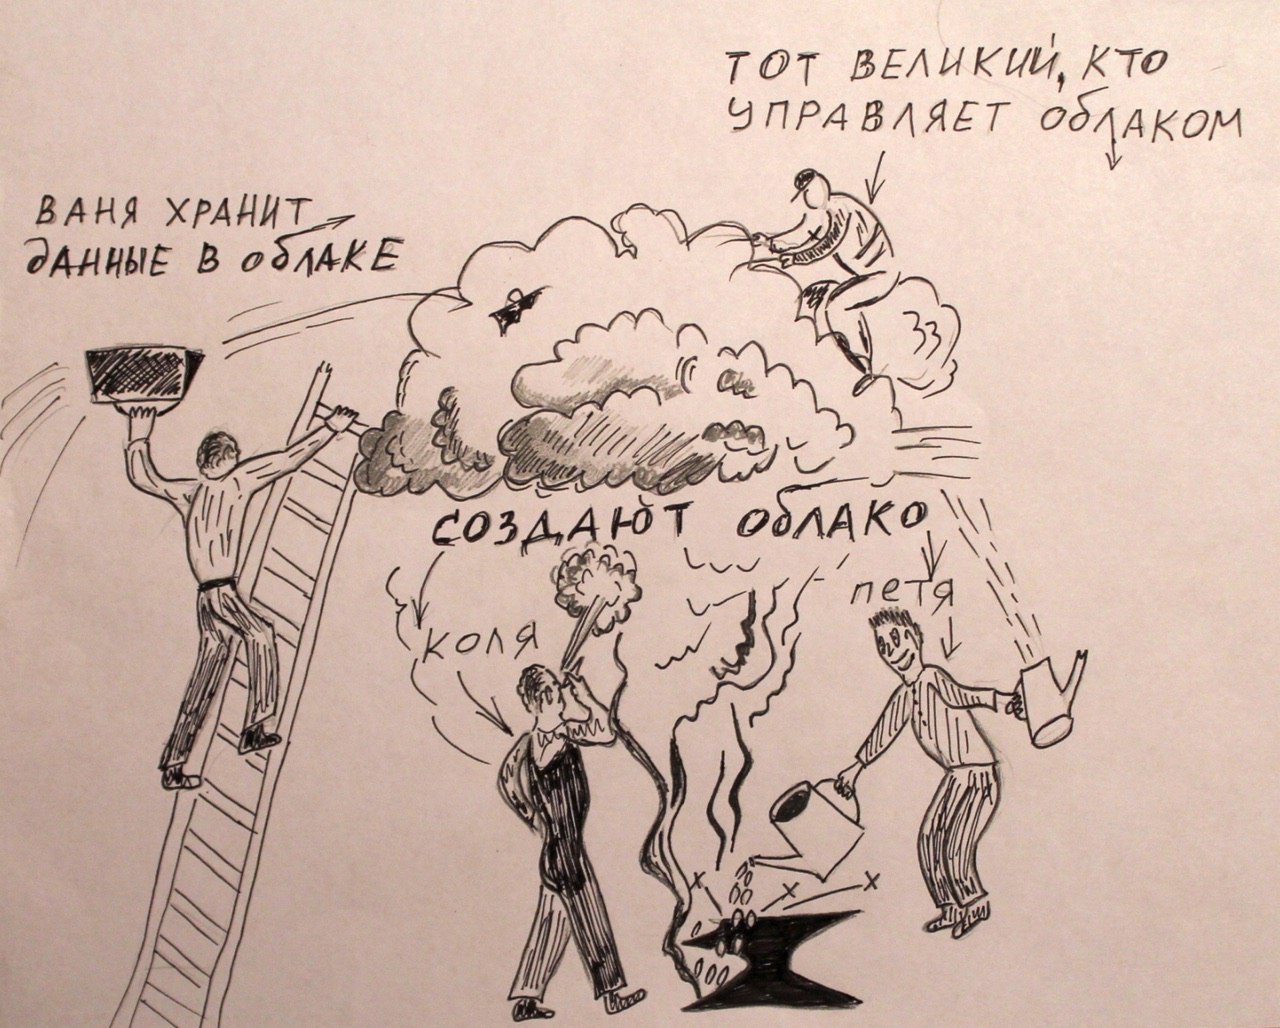 ТОТ ВЕЛИКИЙ, КТО
УПРАВЛЯЕТ ОБЛАКОМ
ВАНЯ ХРАНИТ
ДАННЫЕ В ОБЛАКЕ
СОЗДАЮТ ОБЛАКО
КОЛЯ
ПЕТЯ